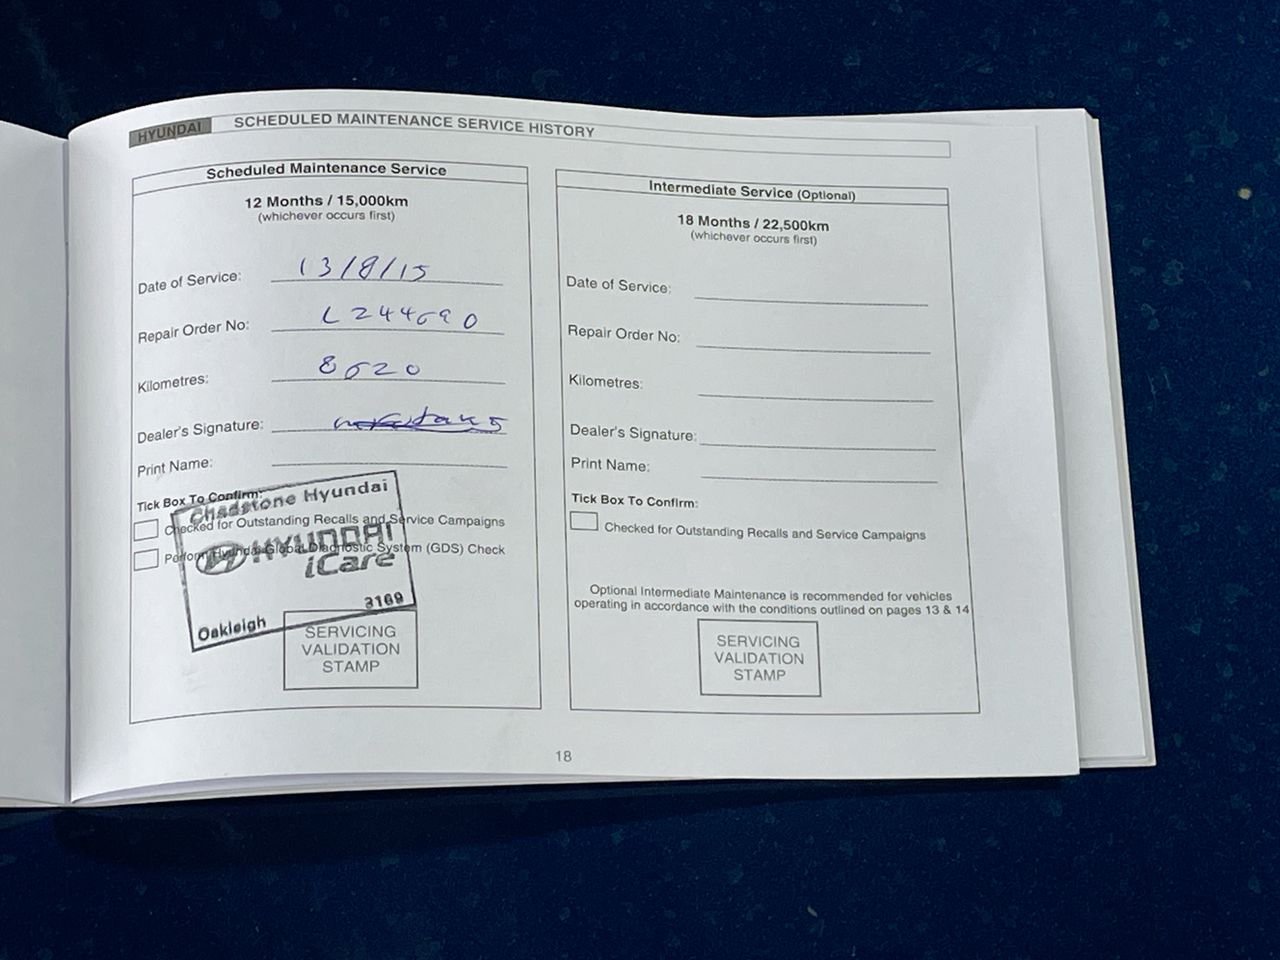 HYUNDAI SCHEDULED MAINTENANCE SERVICE HISTORY
Scheduled Maintenance Service
12 Months / 15,000km
(whichever occurs first)
Date of Service: 13/8/15
Repair Order No: L244690
Kilometres: 8620
Dealer's Signature:
Print Name:
Tick Box To Confirm:
Checked for Outstanding Recalls and Service Campaigns
Perform Hyundai Global Diagnostic System (GDS) Check
Chadstone Hyundai
HYUNDAI
iCare
Oakleigh 3169
SERVICING
VALIDATION
STAMP
Intermediate Service (Optional)
18 Months / 22,500km
(whichever occurs first)
Date of Service:
Repair Order No:
Kilometres:
Dealer's Signature:
Print Name:
Tick Box To Confirm:
Checked for Outstanding Recalls and Service Campaigns
Optional Intermediate Maintenance is recommended for vehicles
operating in accordance with the conditions outlined on pages 13 & 14
SERVICING
VALIDATION
STAMP
18